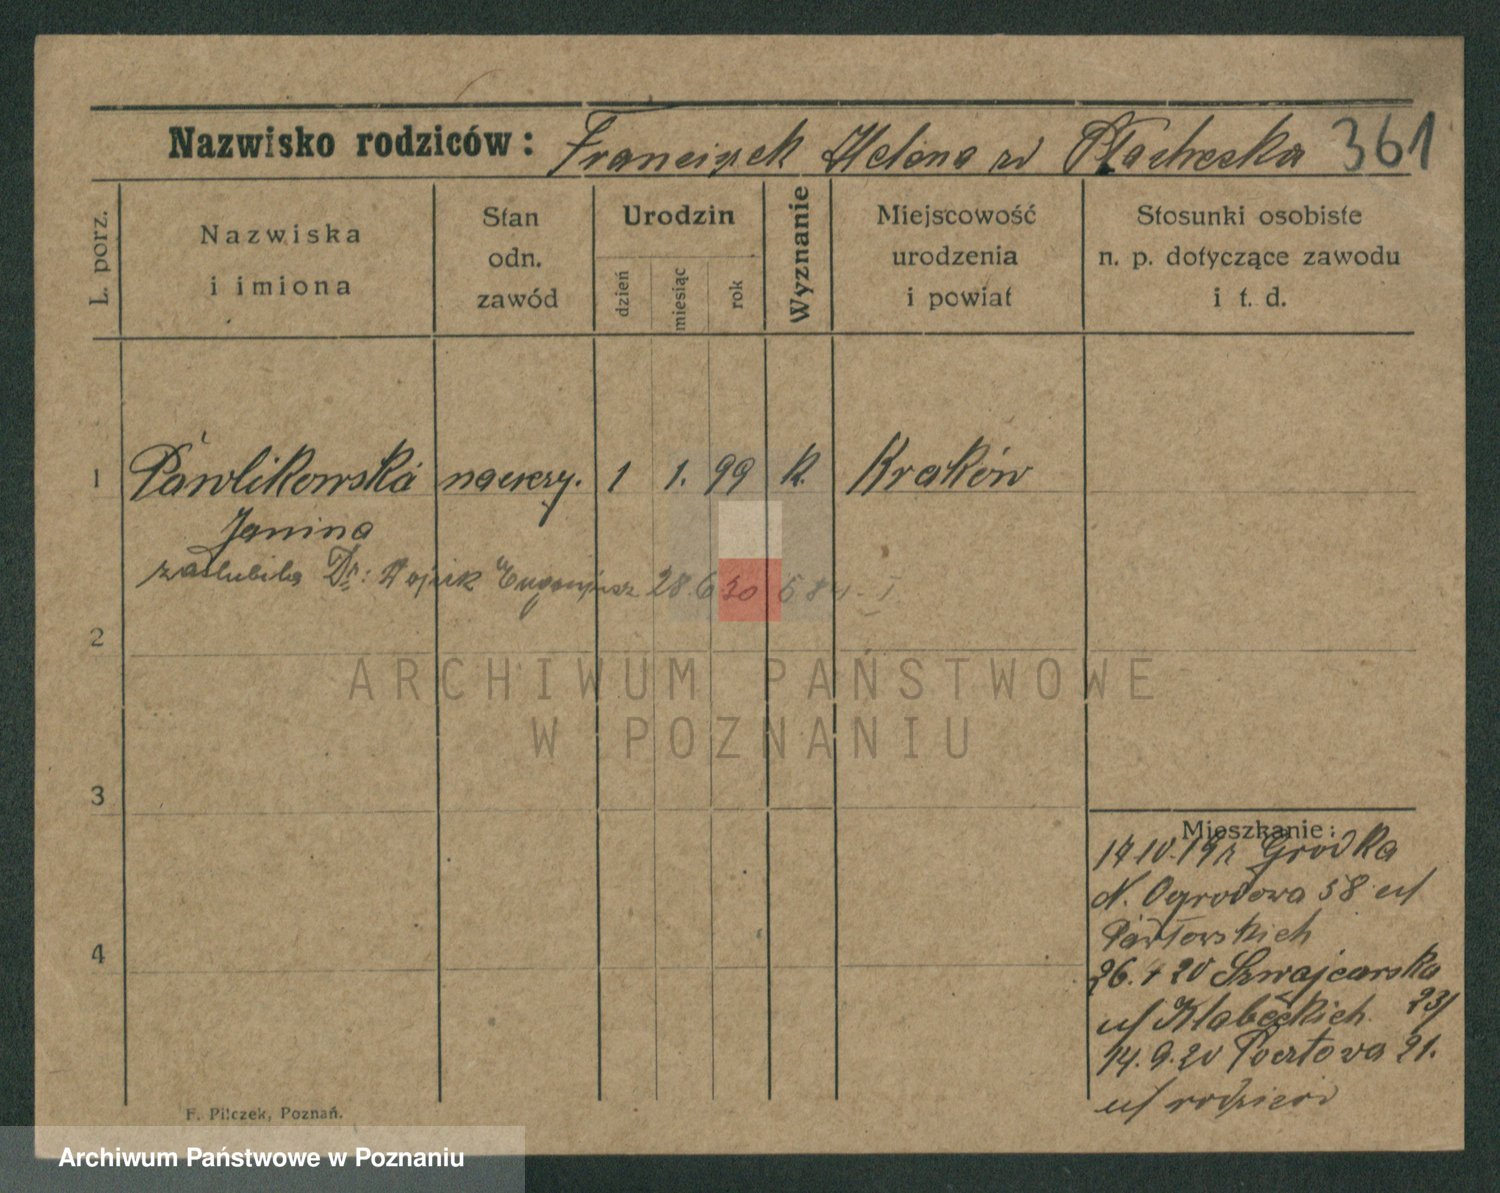 Nazwisko rodziców: Franciszek Helena zd 361
L. porz.
Nazwiska i imiona
Stan odn. zawód
Urodzin
dzień
miesiąc
rok
Wyznanie
Miejscowość urodzenia i powiat
Stosunki osobiste n. p. dotyczące zawodu i t. d.
1 Pawlikowska nauczy. 1 1. 99 k. Kraków
Janina
zaślubiła Dr: Wojcik Eugeniusz 28.6 30 584. I
2
ARCHIWUM PAŃSTWOWE
W POZNANIU
3
Mieszkanie:
17.10.19 r Grodka
N. Ogrodowa 58 u/
Pawłowskich
26.4 20 Szwajcarska
u/ 23/
4
14.9.20 Pocztowa 21.
u/ rodziców
F. Pilczek, Poznań.
Archiwum Państwowe w Poznaniu